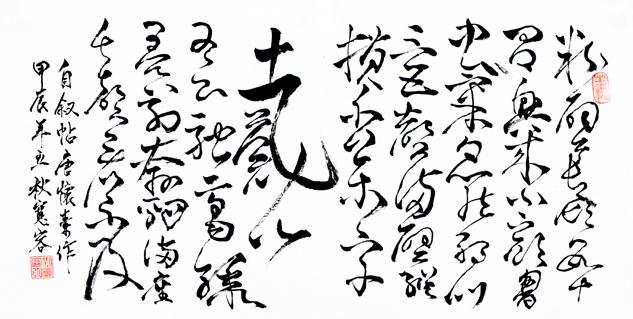 粉壁長廊數十
間興來小豁胸
中氣忽然絕叫
三五聲滿壁縱
橫千萬字
戴公
又云馳毫驟
墨列奔駟滿座
失聲看不及
自叙帖唐懷素作
甲辰年立秋